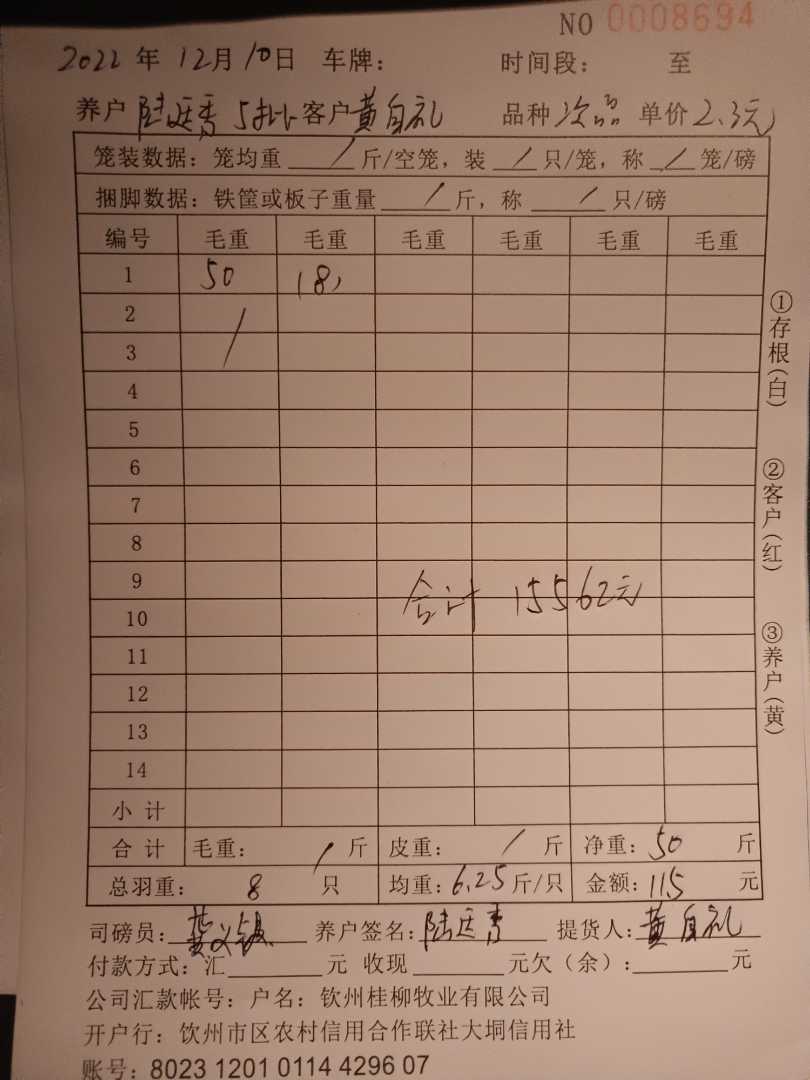 NO 0008694
2022 年 12月 10日 车牌: 时间段: 至
养户 陆廷秀 5批 客户 黄自礼 品种 次品 单价 2.3元
笼装数据: 笼均重 / 斤/空笼, 装 / 只/笼, 称 / 笼/磅
捆脚数据: 铁筐或板子重量 / 斤, 称 / 只/磅
编号 毛重 毛重 毛重 毛重 毛重 毛重
1 50 (8)
2 /
3
4
5
6
7
8
9
合计 15562元
10
11
12
13
14
小 计
合 计 毛重: / 斤 皮重: / 斤 净重: 50 斤
总羽重: 8 只 均重: 6.25 斤/只 金额: 115 元
司磅员: 养户签名: 陆廷秀 提货人: 黄自礼
付款方式: 汇 元 收现 元欠(余): 元
公司汇款帐号: 户名: 钦州桂柳牧业有限公司
开户行: 钦州市区农村信用合作联社大垌信用社
账号: 8023 1201 0114 4296 07
①存根(白)
②客户(红)
③养户(黄)